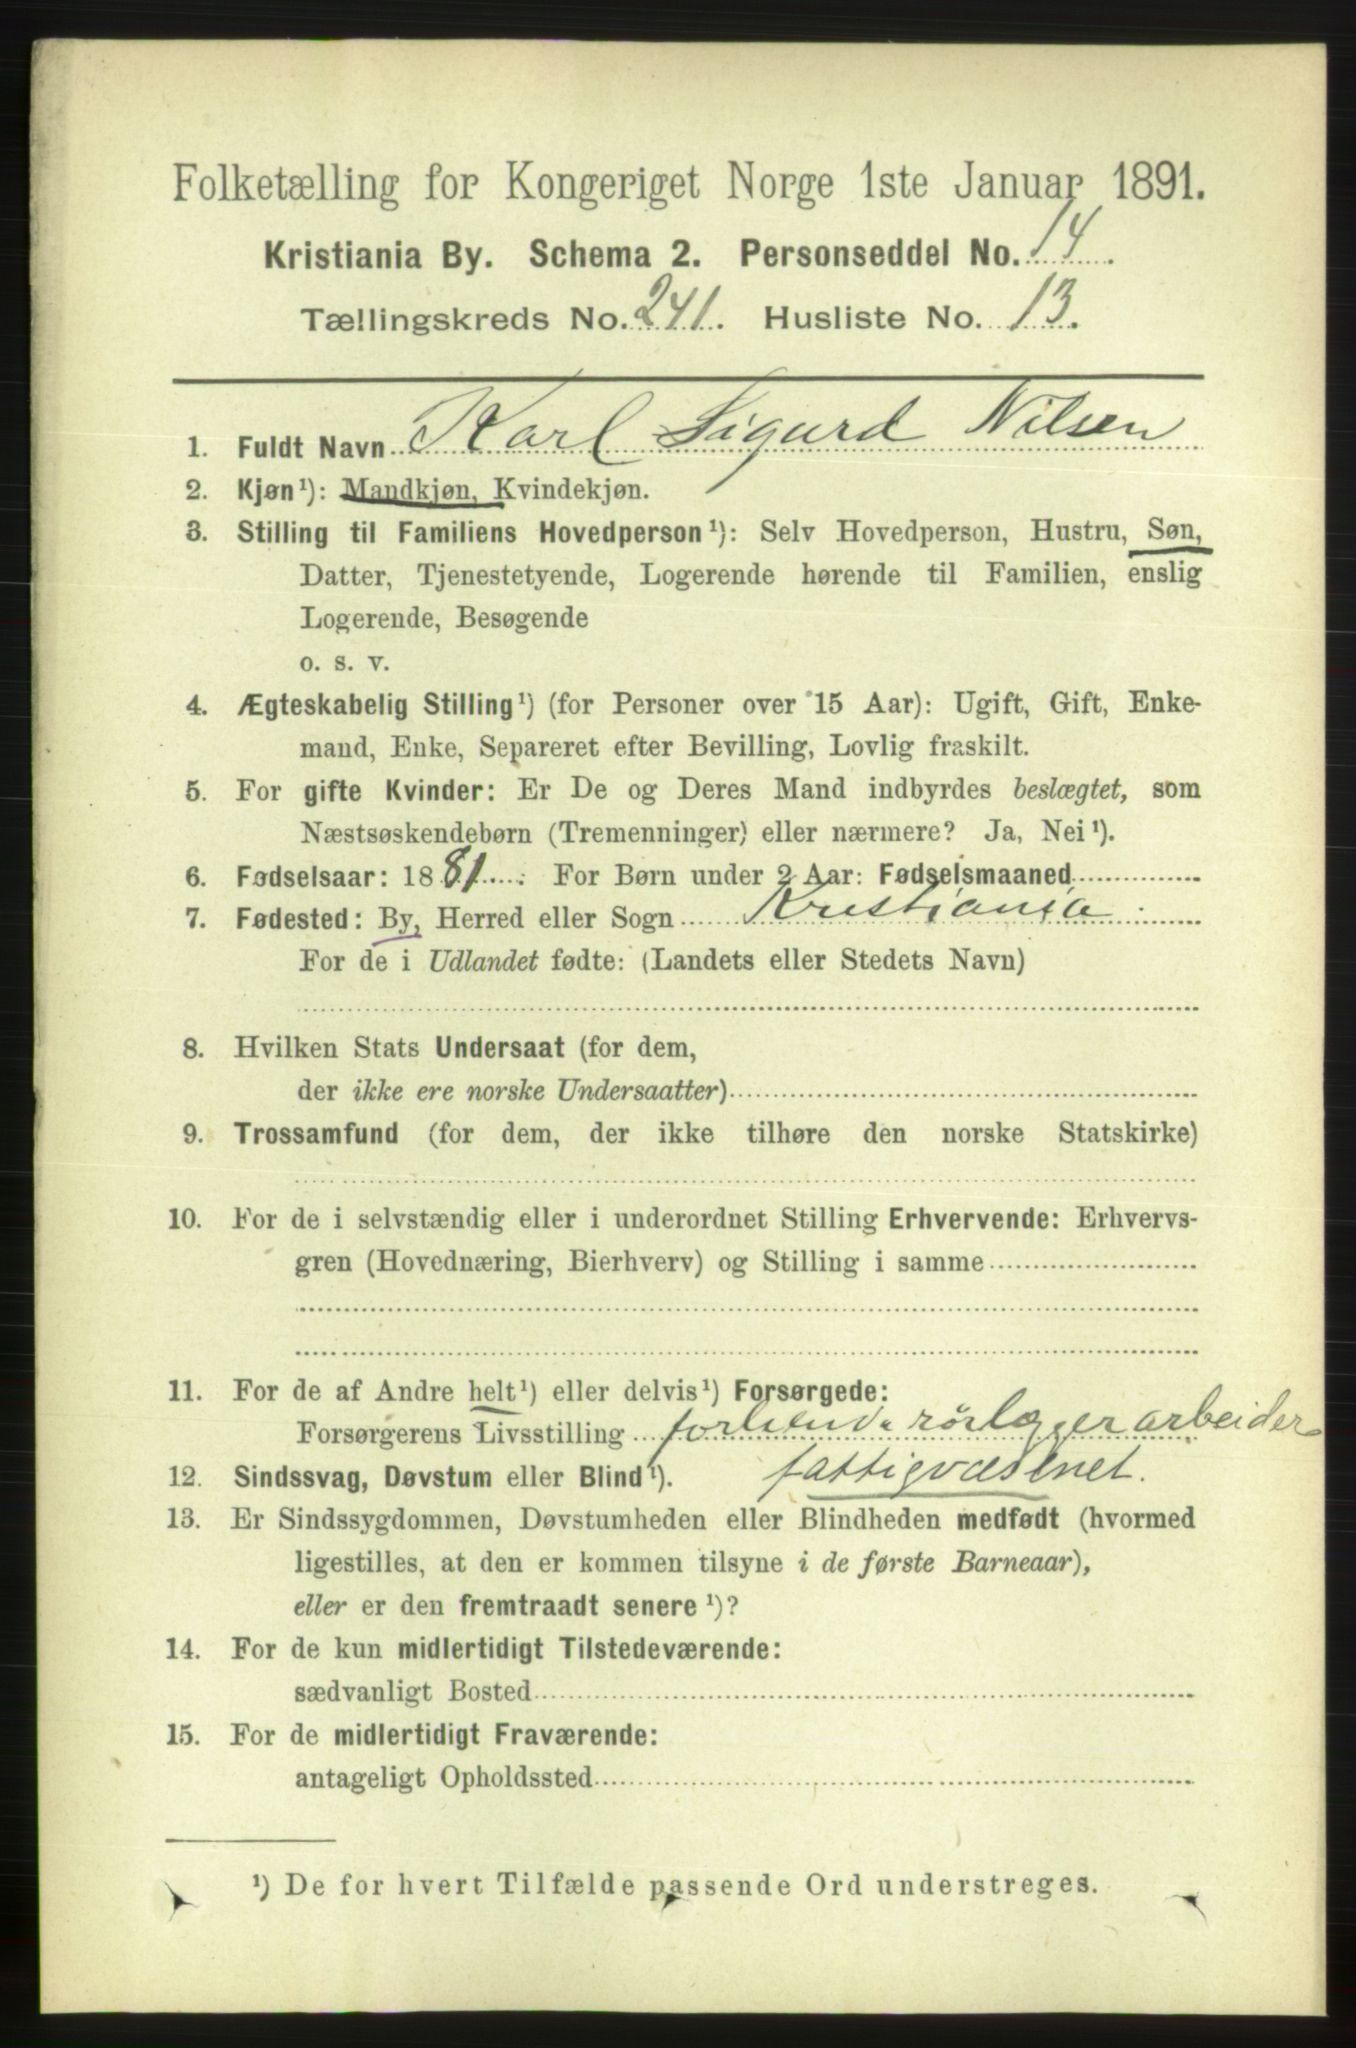 Folketælling for Kongeriget Norge 1ste Januar 1891.
Kristiania By. Schema 2. Personseddel No. 14.
Tællingskreds No. 241. Husliste No. 13.
1. Fuldt Navn Karl Sigurd Nilsen
2. Kjøn¹): Mandkjøn, Kvindekjøn.
3. Stilling til Familiens Hovedperson¹): Selv Hovedperson, Hustru, Søn,
Datter, Tjenestetyende, Logerende hørende til Familien, enslig
Logerende, Besøgende
o. s. v.
4. Ægteskabelig Stilling¹) (for Personer over 15 Aar): Ugift, Gift, Enke-
mand, Enke, Separeret efter Bevilling, Lovlig fraskilt.
5. For gifte Kvinder: Er De og Deres Mand indbyrdes beslægtet, som
Næstsøskendebørn (Tremenninger) eller nærmere? Ja, Nei¹).
6. Fødselsaar: 1881. For Børn under 2 Aar: Fødselsmaaned
7. Fødested: By, Herred eller Sogn Kristiania
For de i Udlandet fødte: (Landets eller Stedets Navn)
8. Hvilken Stats Undersaat (for dem,
der ikke ere norske Undersaatter)
9. Trossamfund (for dem, der ikke tilhøre den norske Statskirke)
10. For de i selvstændig eller i underordnet Stilling Erhvervende: Erhvervs-
gren (Hovednæring, Bierhverv) og Stilling i samme
11. For de af Andre helt¹) eller delvis¹) Forsørgede:
Forsørgerens Livsstilling rørlæggerarbeider
fattigvæsenet.
12. Sindssvag, Døvstum eller Blind¹).
13. Er Sindssygdommen, Døvstumheden eller Blindheden medfødt (hvormed
ligestilles, at den er kommen tilsyne i de første Barneaar),
eller er den fremtraadt senere¹)?
14. For de kun midlertidigt Tilstedeværende:
sædvanligt Bosted
15. For de midlertidigt Fraværende:
antageligt Opholdssted
¹) De for hvert Tilfælde passende Ord understreges.